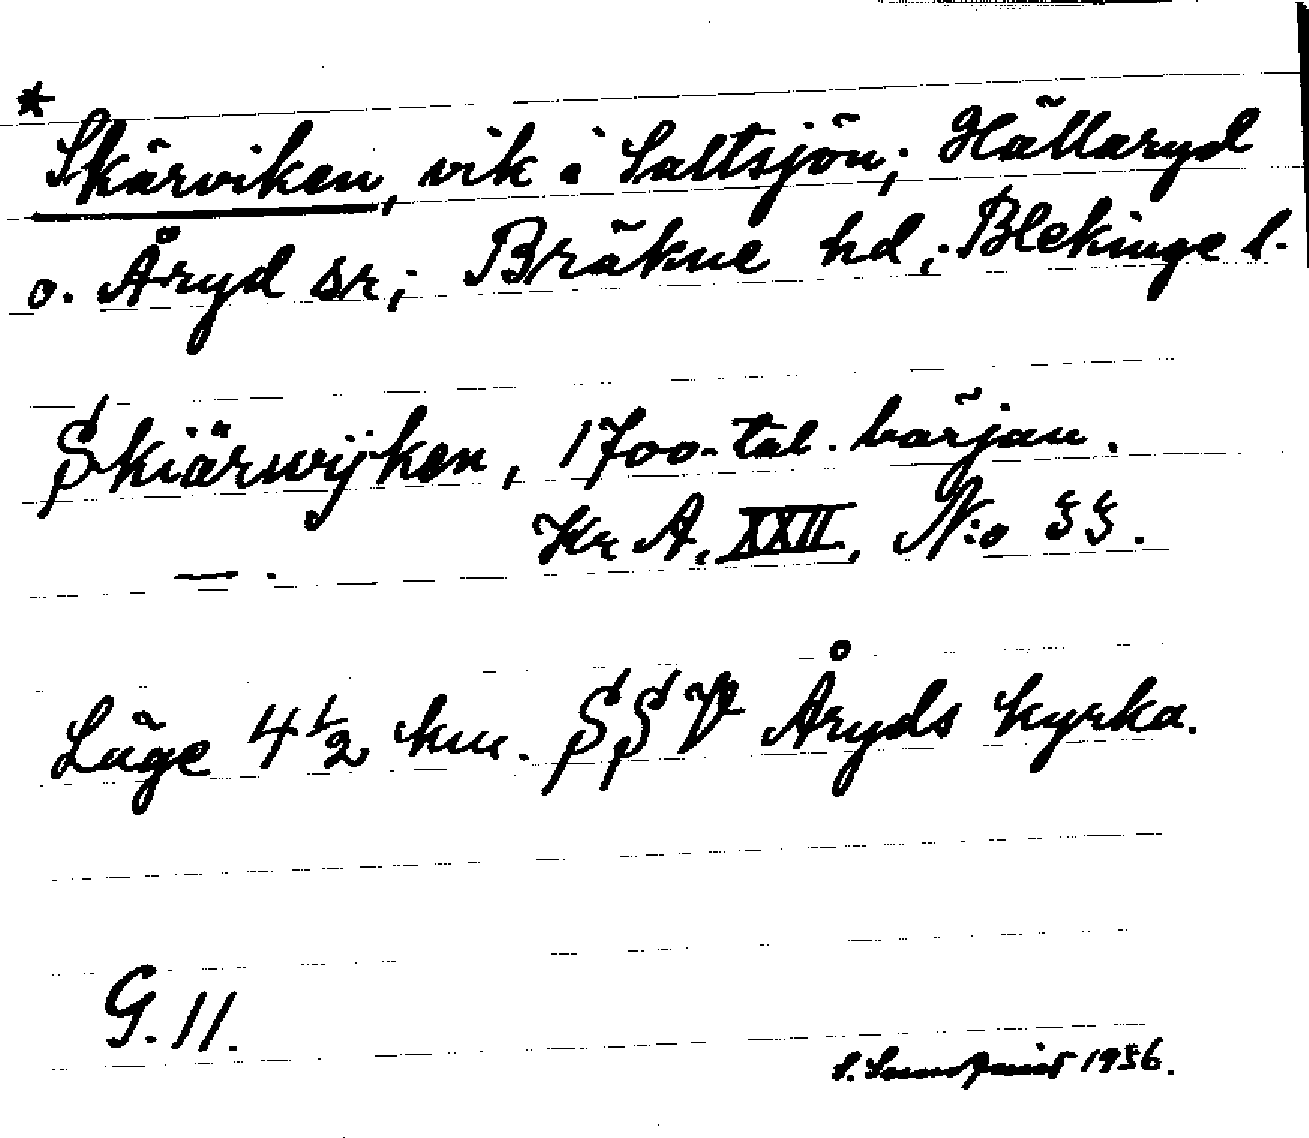 * Skärviken, vik i Saltsjön; Hällaryd
o. Åryd sr; Bräkne hd; Blekinge l.
Skiärwijken, 1700-tal. början.
Kr A. XXII, N:o 55.
— .
Läge 4 1/2 km. SSV Åryds kyrka.
G. 11.
S. 1956.